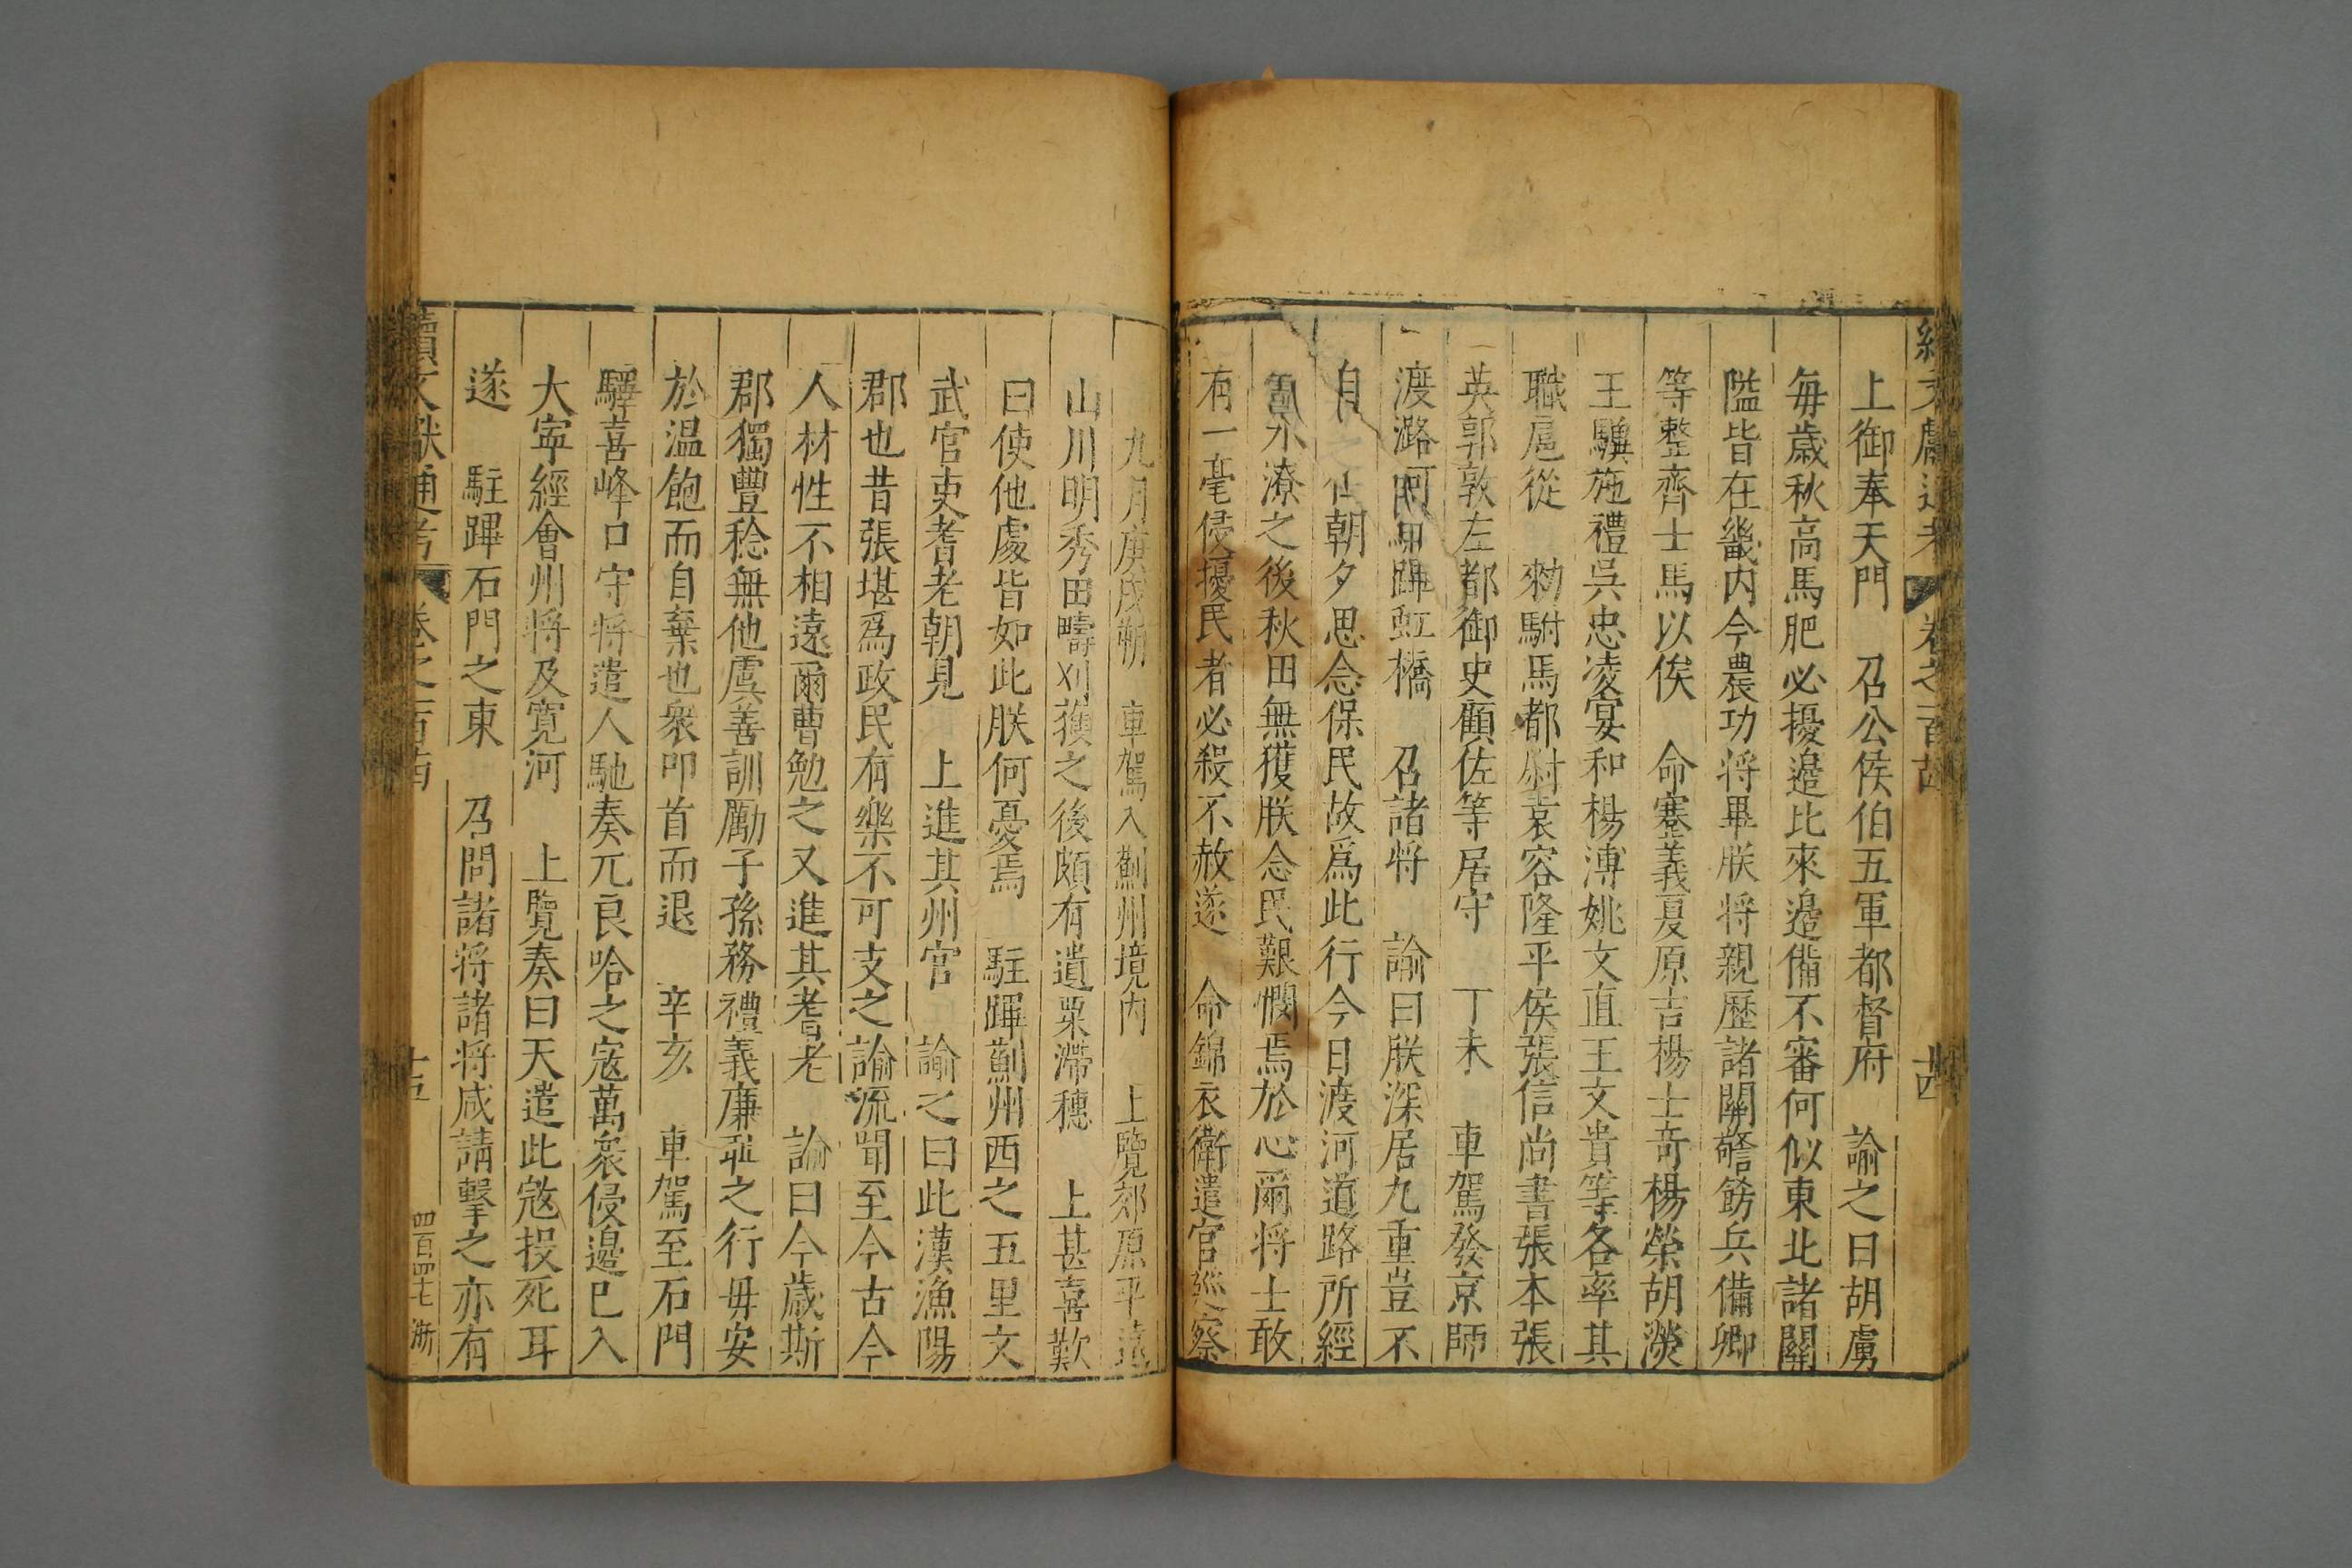 上御奉天門　召公侯伯五軍都督府　諭之曰胡虜
每歲秋高馬肥必擾邉比來邉備不審何似東北諸關
隘皆在畿内今農功將畢朕將親歷諸關警飭兵備卿
等整齊士馬以俟　命蹇義夏原吉楊士竒楊榮胡濙
王驥施禮吳忠凌宴和楊溥姚文直王文貴等各率其
職扈從　勑駙馬都尉袁容隆平侯張信尚書張本張
英郭敦左都御史顧佐等居守　丁未　車駕發京師
渡潞河駐蹕虹橋　召諸將　諭曰朕深居九重豈不
自　朝夕思念保民故爲此行今日渡河道路所經
水潦之後秋田無獲朕念民艱憫焉於心爾將士敢
有一毫侵擾民者必殺不赦遂　命錦衣衛遣官廵察
九月庚戌朔　車駕入薊州境内　上覽郊原平遠
山川明秀田疇刈穫之後頗有遺粟滯穗　上甚喜歎
曰使他處皆如此朕何憂焉　駐蹕薊州西之五里文
武官吏耆老朝見　上進其州官　諭之曰此漢漁陽
郡也昔張堪爲政民有樂不可支之諭流聞至今古今
人材性不相遠爾曹勉之又進其耆老　諭曰今歲斯
郡獨豐稔無他虞善訓勵子孫務禮義廉耻之行毋安
於温飽而自棄也衆叩首而退　辛亥　車駕至石門
驛喜峰口守將遣人馳奏兀良哈之寇萬衆侵邉已入
大寧經會州將及寬河　上覽奏曰天遣此寇投死耳
遂　駐蹕石門之東　乃問諸將諸將咸請擊之亦有
續文獻通考　卷之　　十五　四百四十七　浙